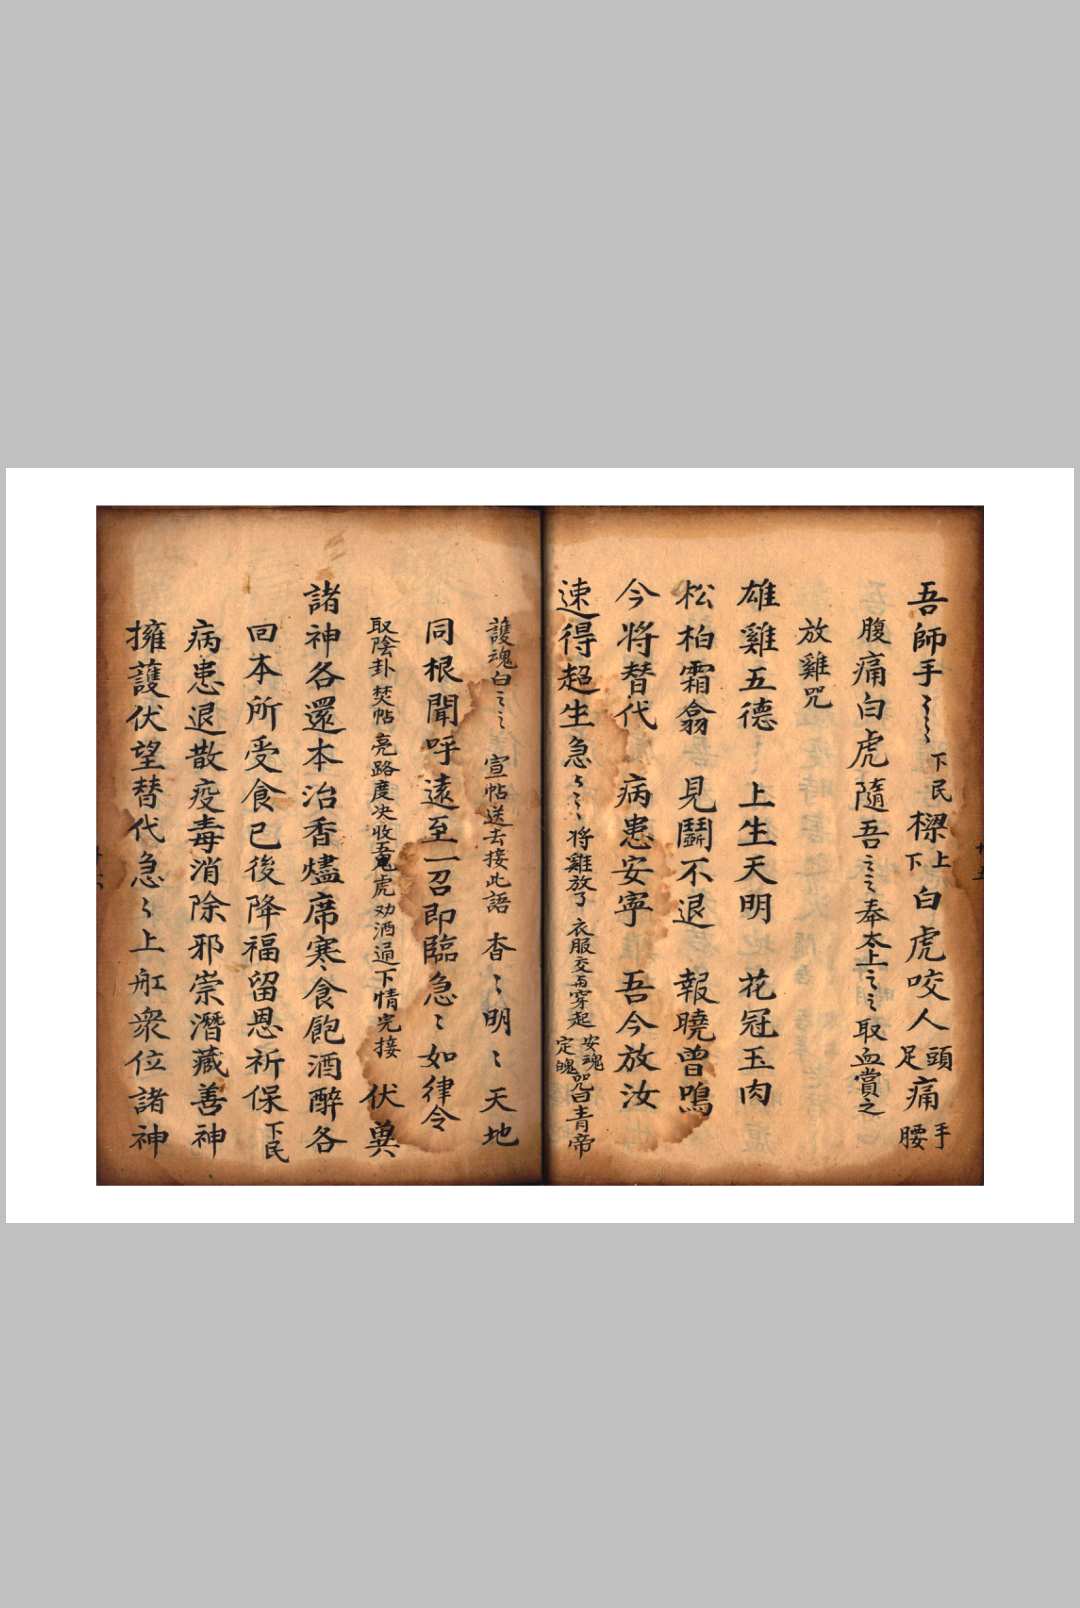 吾師手〻〻〻下民樑上下白虎咬人頭足痛手腰
腹痛白虎隨吾〻〻奉太上〻〻取血賞之
放雞咒
雄雞五德 上生天明 花冠玉肉
松柏霜翕 見鬭不退 報曉曾鳴
今将替代 病患安寜 吾今放汝
速得超生急〻〻〻将雞放了 衣服交与穿起 安魂定魄咒曰青帝
護魂白〻〻 宣帖送去接此語 杳〻明〻天地
同根聞呼遠至一召即臨急〻如律令
取陰卦焚帖亮路度决收五鬼虎劝酒通下情完接 伏奠
諸神各還本治香燼席寒食飽酒醉各
回本所受食已後降福留恩祈保下民
病患退散疫毒消除邪崇潛藏善神
擁護伏望替代急〻上舡衆位諸神